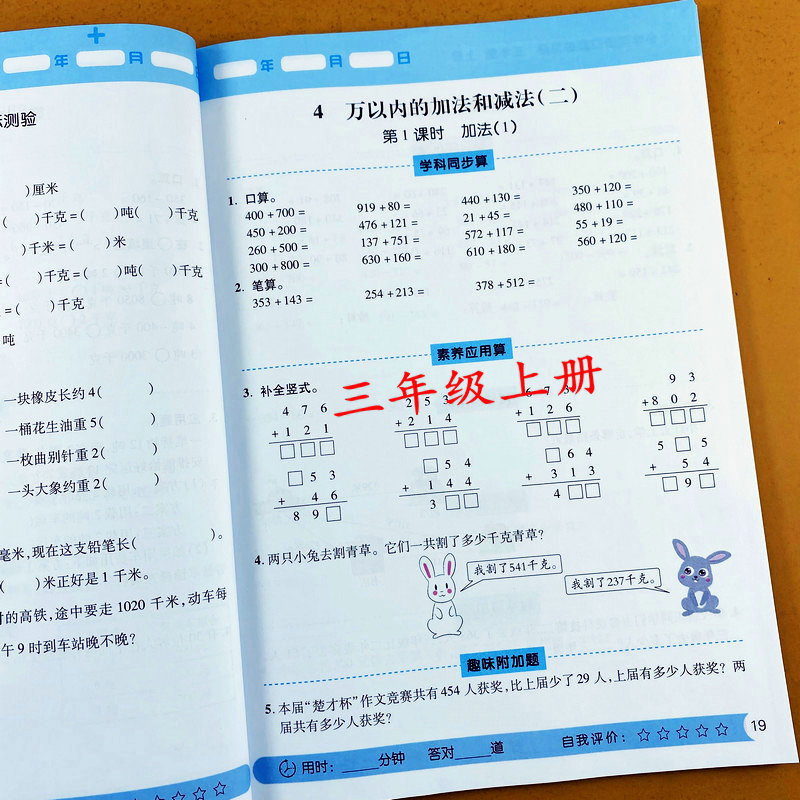 年 月
测验
)厘米
( )千克=( )吨( )千克
( )千米=( )米
( )千克=( )吨( )千克
=( )千克
吨
一块橡皮长约4( )
一桶花生油重5( )
一枚曲别针重2( )
一头大象约重2( )
毫米,现在这支铅笔长( )。
( )米正好是1千米。
的高铁,途中要走1020千米,动车每
午9时到车站晚不晚?
年 月 日
4 万以内的加法和减法(二)
第1课时 加法(1)
学科同步算
1. 口算。
400+700= 919+80= 440+130= 350+120=
450+200= 476+121= 21+45= 480+110=
260+500= 137+751= 572+117= 55+19=
300+800= 630+160= 610+180= 560+120=
2. 笔算。
353+143= 254+213= 378+512=
素养应用算
三年级上册
3. 补全竖式。
476 253 673 93
+121 +214 +126 +802
□□□ □□□ □□□ □□□
□53 □54 □64 5□
+ 46 +144 +313 + 54
89□ 3□□ 4□□ □9□
4. 两只小兔去割青草。它们一共割了多少千克青草?
我割了541千克。
我割了237千克。
趣味附加题
5. 本届“楚才杯”作文竞赛共有454人获奖,比上届少了29人,上届有多少人获奖?两
届共有多少人获奖?
用时:_____分钟 答对_____道 自我评价:☆☆☆☆☆
19